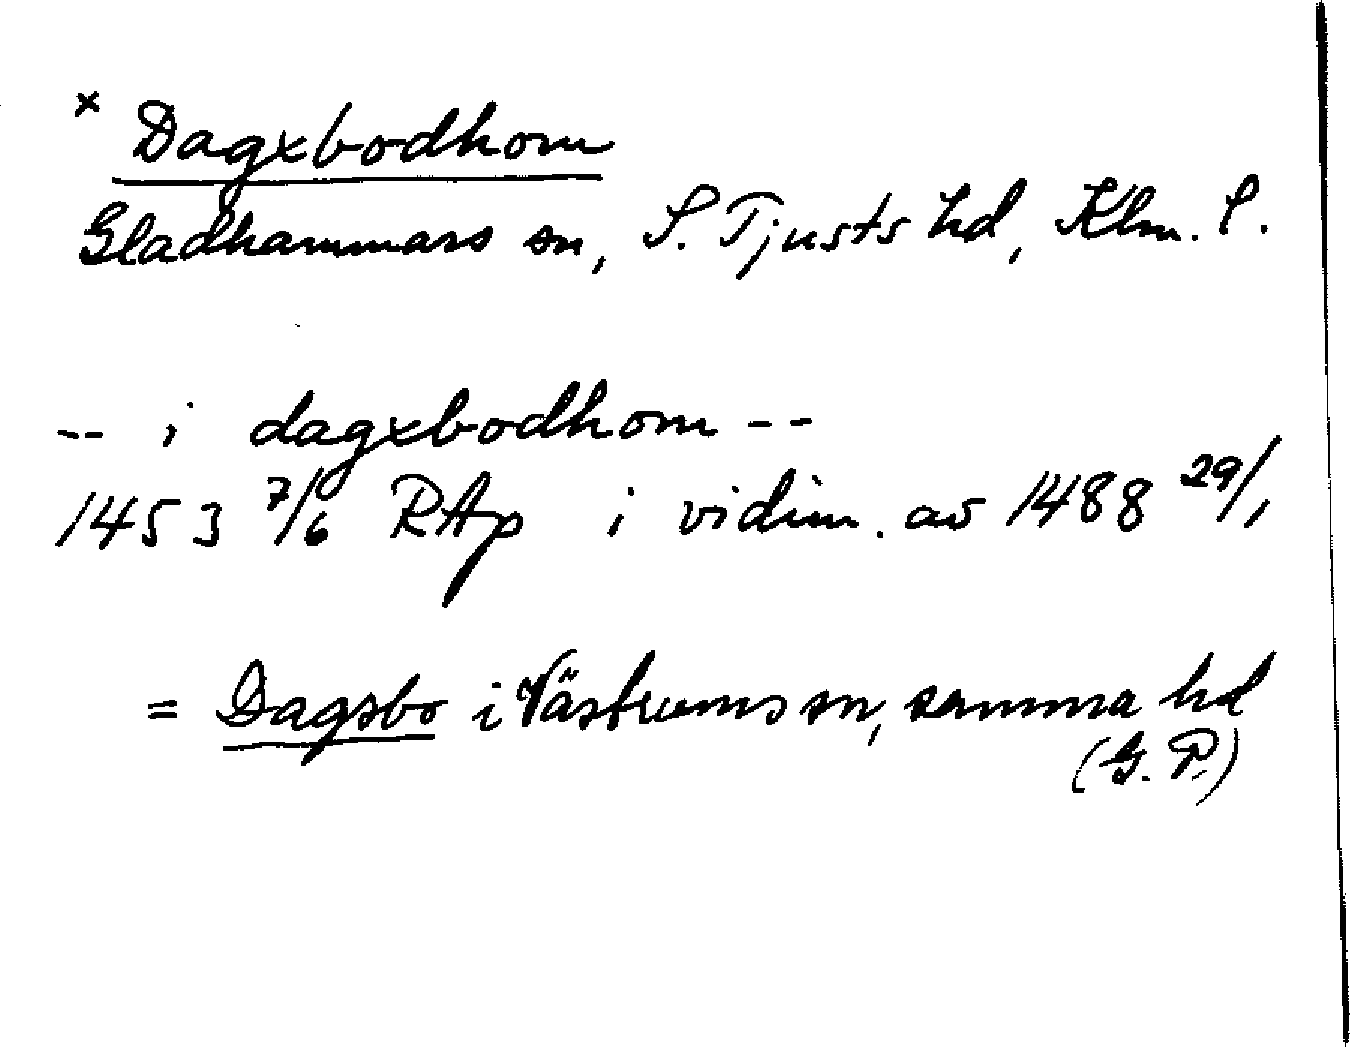 x Dagxbodhom
Gladhammars sn, S. Tjusts hd, Klm. l.
-- i dagxbodhom --
1453 7/6 RAp i vidim. av 1488 29/1
= Dagsbo i Västrums sn, samma hd
(G. P.)